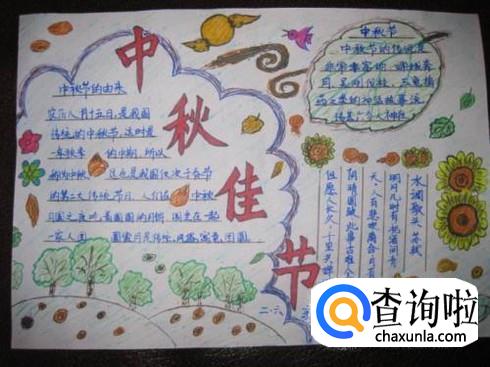 中秋佳节
中秋节的由来
农历八月十五日,是我国
传统的中秋节,这时是
一年秋季 的中期,所以
称为中秋 这也是我国仅次于春节
的第二大传统节日,人们在 中秋
一家人团
中秋节
中秋节的传说是
非常丰富的,嫦娥奔
月,吴刚伐桂,玉兔捣
药之类的神话故事流
水调歌头 苏轼
明月几时有把酒问青
天,人有悲欢离合月有
阴晴圆缺,此事古难全
但愿人长久,千里共婵
二·六
查询啦
chaxunla.com